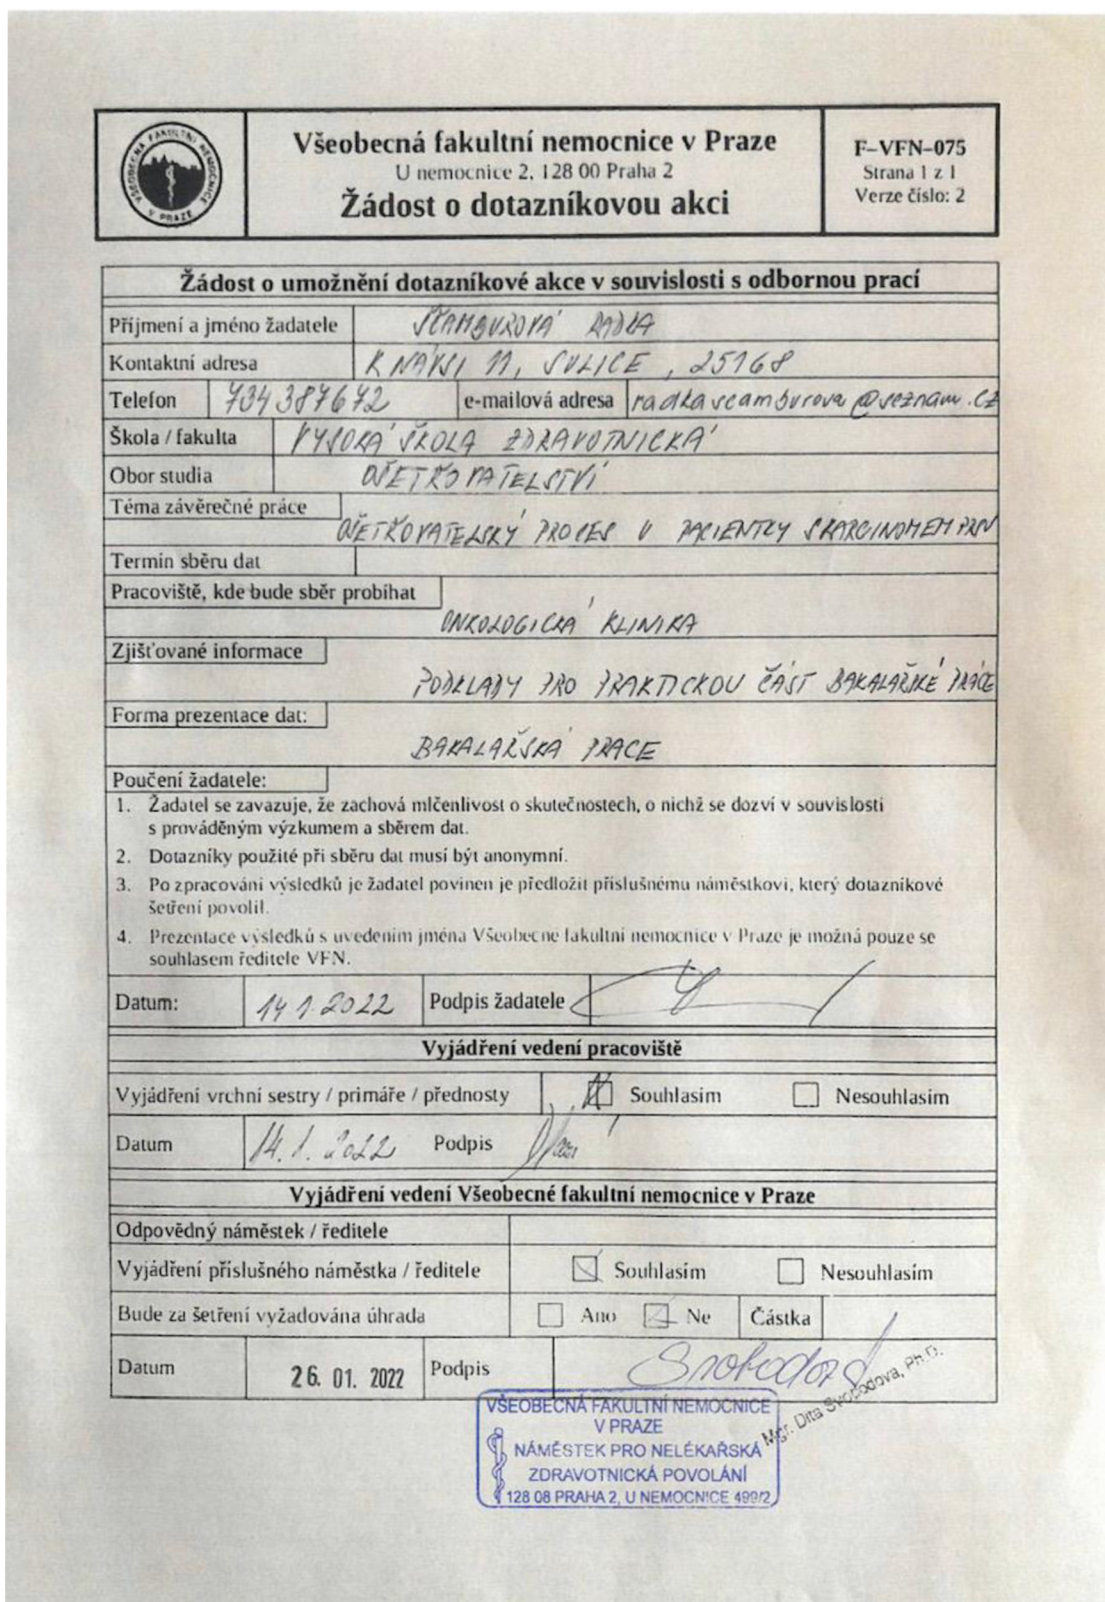 VŠEOBECNÁ FAKULTNÍ NEMOCNICE V PRAZE
Všeobecná fakultní nemocnice v Praze
U nemocnice 2, 128 00 Praha 2
Žádost o dotazníkovou akci
F-VFN-075
Strana 1 z 1
Verze číslo: 2
Žádost o umožnění dotazníkové akce v souvislosti s odbornou prací
Příjmení a jméno žadatele ŠČAMBUROVÁ RADKA
Kontaktní adresa K NÁVSI 11, SULICE, 25168
Telefon 734387672 e-mailová adresa radkascamburova@seznam.cz
Škola / fakulta VYSOKÁ ŠKOLA ZDRAVOTNICKÁ
Obor studia OŠETŘOVATELSTVÍ
Téma závěrečné práce
OŠETŘOVATELSKÝ PROCES U PACIENTKY S KARCINOMEM PRSU
Termín sběru dat
Pracoviště, kde bude sběr probíhat
ONKOLOGICKÁ KLINIKA
Zjišťované informace
PODKLADY PRO PRAKTICKOU ČÁST BAKALÁŘSKÉ PRÁCE
Forma prezentace dat:
BAKALÁŘSKÁ PRÁCE
Poučení žadatele:
1. Žadatel se zavazuje, že zachová mlčenlivost o skutečnostech, o nichž se dozví v souvislosti
s prováděným výzkumem a sběrem dat.
2. Dotazníky použité při sběru dat musí být anonymní.
3. Po zpracování výsledků je žadatel povinen je předložit příslušnému náměstkovi, který dotazníkové
šetření povolil.
4. Prezentace výsledků s uvedením jména Všeobecné fakultní nemocnice v Praze je možná pouze se
souhlasem ředitele VFN.
Datum: 14 1. 2022 Podpis žadatele
Vyjádření vedení pracoviště
Vyjádření vrchní sestry / primáře / přednosty Souhlasím Nesouhlasím
Datum 14. 1. 2022 Podpis
Vyjádření vedení Všeobecné fakultní nemocnice v Praze
Odpovědný náměstek / ředitele
Vyjádření příslušného náměstka / ředitele Souhlasím Nesouhlasím
Bude za šetření vyžadována úhrada Ano Ne Částka
Datum 26. 01. 2022 Podpis Svobodová
Mgr. Dita Svobodová, Ph.D.
VŠEOBECNÁ FAKULTNÍ NEMOCNICE
V PRAZE
NÁMĚSTEK PRO NELÉKAŘSKÁ
ZDRAVOTNICKÁ POVOLÁNÍ
128 08 PRAHA 2, U NEMOCNICE 499/2